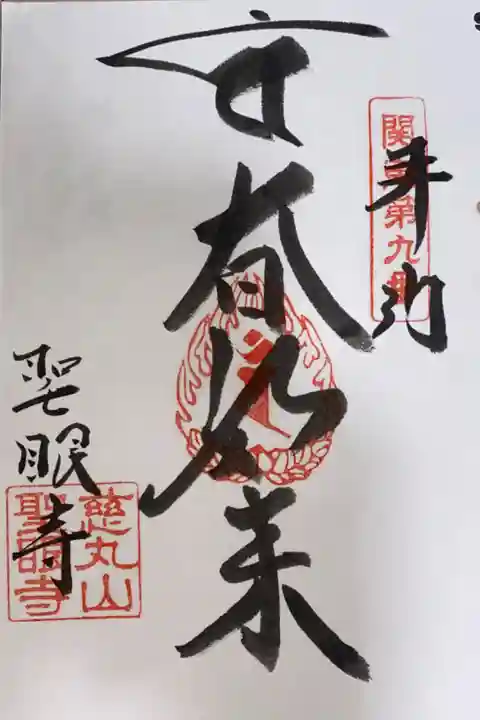 奉拝
第九番
如来
聖眼寺
慈丸山
聖眼寺